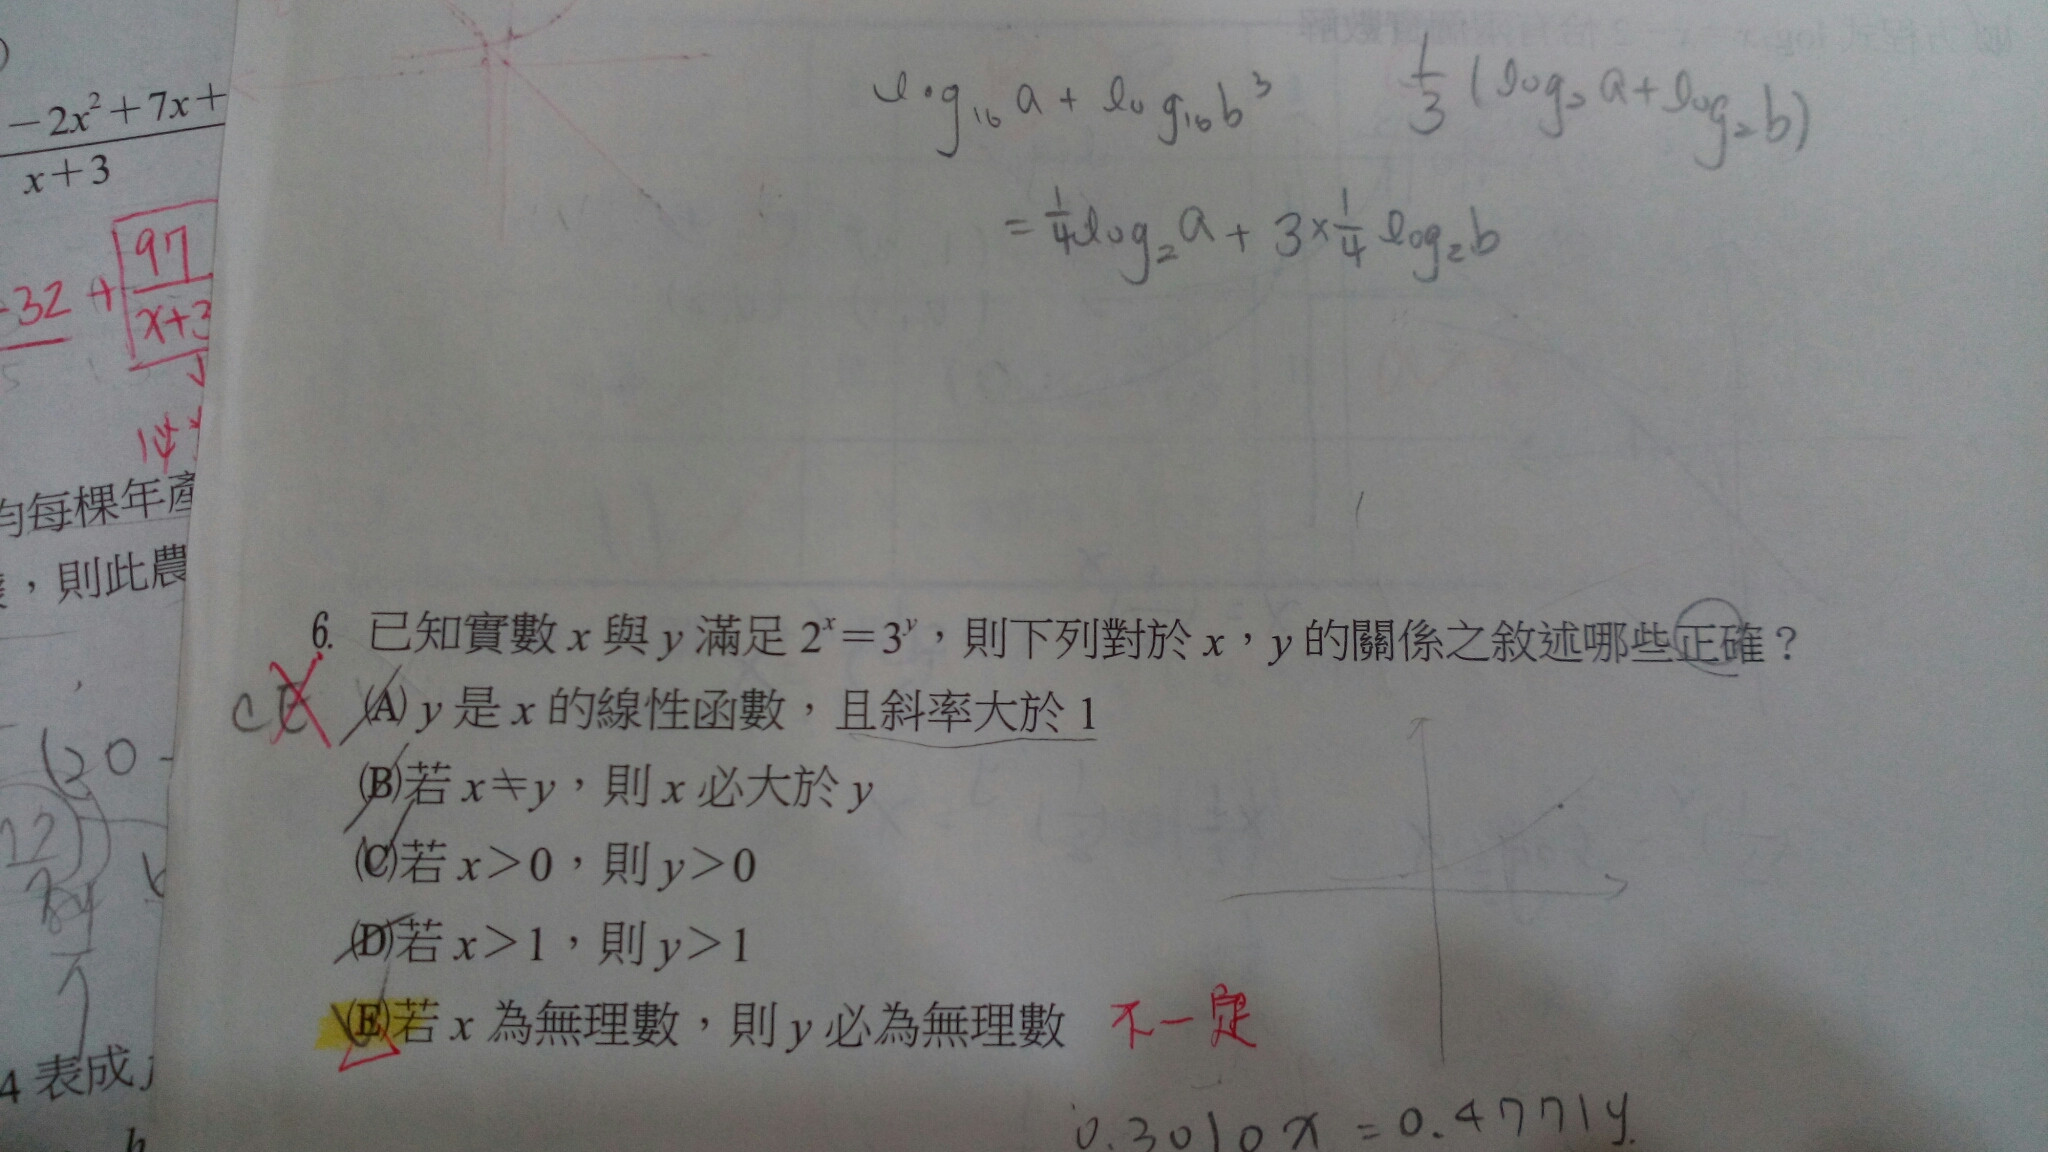 −2x²+7x+
x+3
97
-32 +
x+3
均每棵年產
，則此農
(20 -
4 表成
log₁₆ a + log₁₆ b³
1/3 (log₂ a + log₂ b)
= 1/4 log₂ a + 3 × 1/4 log₂ b
6. 已知實數 x 與 y 滿足 2ˣ=3ʸ，則下列對於 x，y 的關係之敘述哪些正確？
CE
(A) y 是 x 的線性函數，且斜率大於 1
(B)若 x≠y，則 x 必大於 y
(C)若 x>0，則 y>0
(D)若 x>1，則 y>1
(E)若 x 為無理數，則 y 必為無理數 不一定
0.3010x = 0.4771y